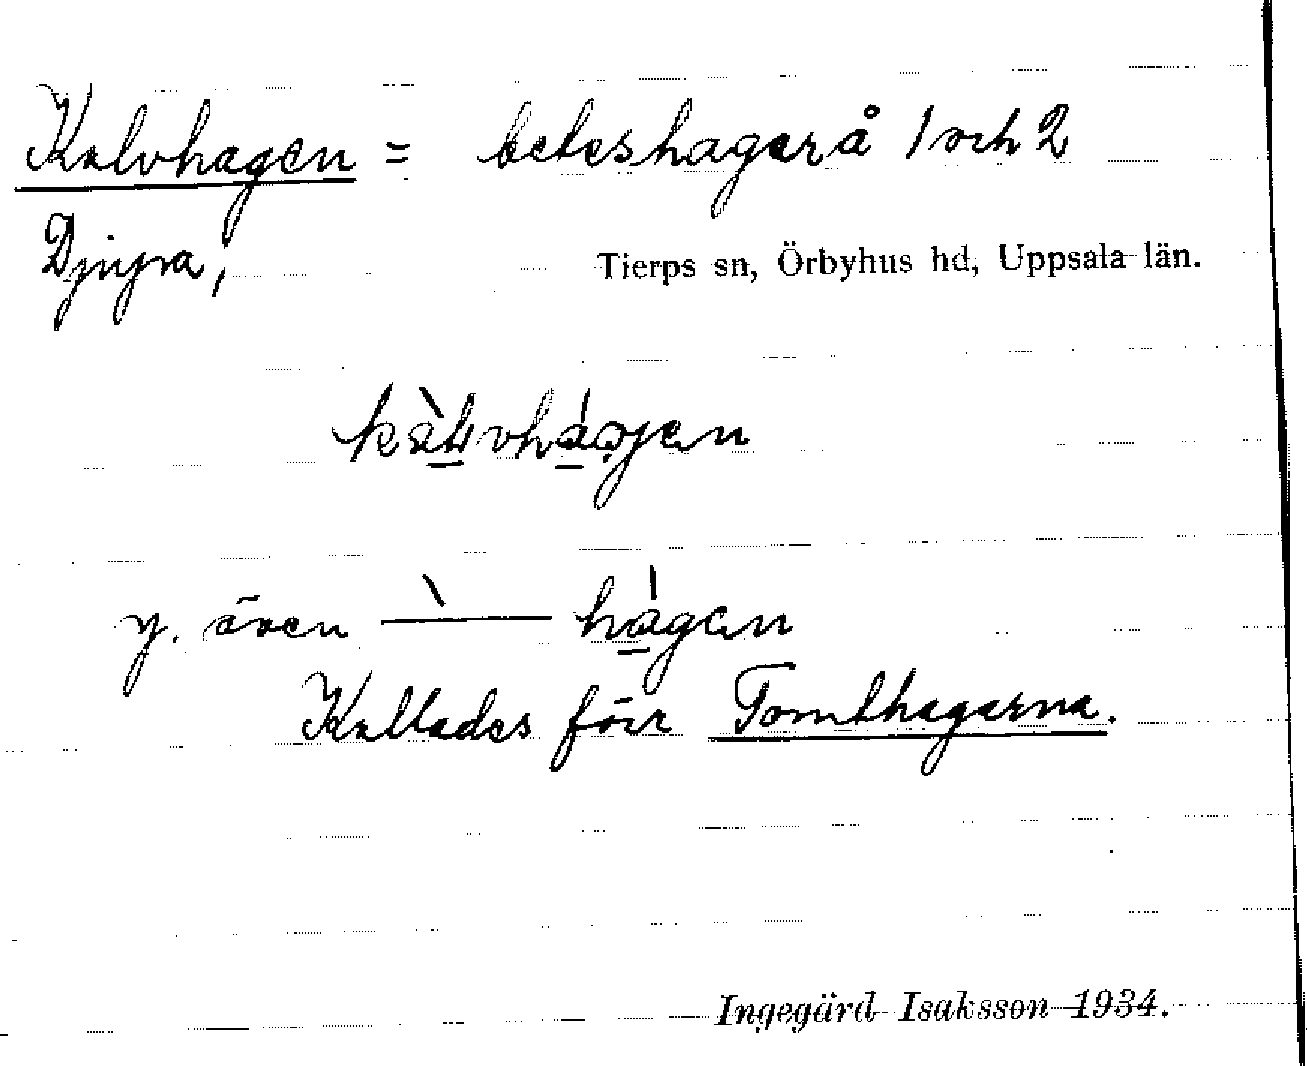 Kalvhagen = beteshagar å 1 och 2
Djupa,
Tierps sn, Örbyhus hd, Uppsala län.
y. även — hagen
Kallades förr Tomthagarna.
Ingegärd Isaksson 1934.